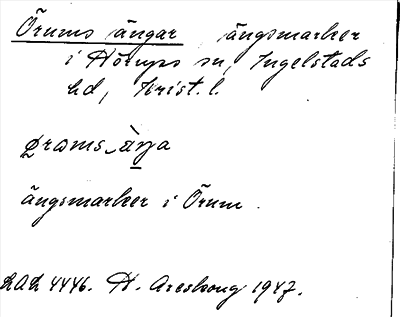 Örums ängar ängsmarker
i Hörups sn, Ingelstads
hd, Krist. l.
ørɑms_ä̀ŋa
ängsmarker i Örum.
LAL 4446. H. Areskoug 1947.